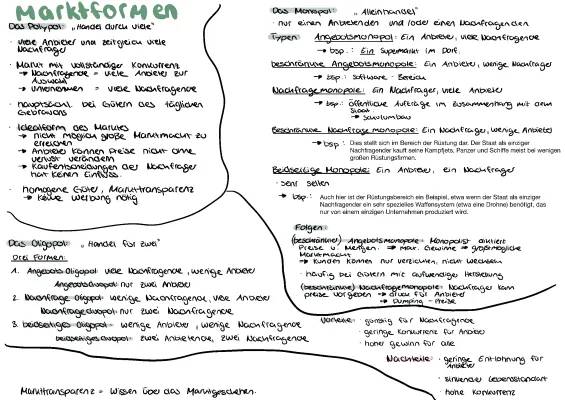 Marktformen
Das Polypol: „Handel durch viele"
· viele Anbieter und zeitgleich viele
Nachfrager
· Markt mit vollständiger Konkurrenz
→ Nachfragende = viele Anbieter zur
Auswahl
→ unternehmen = viele Nachfragende
· hauptsächl. bei Gütern des täglichen
Gebrauchs
· Idealform des Marktes
→ nicht möglich große Marktmacht zu
erreichen
→ Anbieter können Preise nicht ohne
verlust verändern
→ Kaufentscheidungen der Nachfrager
hat keinen Einfluss.
· homogene Güter, Markttransparenz
→ keine Werbung nötig
Das Oligopol: „Handel für zwei"
Drei Formen:
1. Angebots-Oligopol: viele Nachfragende, wenige Anbieter
Angebotsduopol: nur zwei Anbieter
2. Nachfrage-Oligopol: wenige Nachfragende, viele Anbieter
Nachfrageduopol: nur zwei Nachfragende
3. beidseitiges Oligopol: wenige Anbieter, wenige Nachfragende
beidseitiges duopol: zwei Anbietende, zwei Nachfragende
Markttransparenz = Wissen über das Marktgeschehen.
Das Monopol: „Alleinhandel"
· nur einen Anbietenden und/oder einen Nachfragenden
Typen Angebotsmonopol: Ein Anbieter, viele Nachfragende
→ bsp.: Ein Supermarkt im Dorf.
beschränkte Angebotsmonopole: Ein Anbieter, wenige Nachfrager
→ bsp.: Software-Bereich
Nachfragemonopole: Ein Nachfrager, viele Anbieter
→ bsp.: öffentliche Aufträge im zusammenhang mit dem
Staat.
→ schulumbau
Beschränkte Nachfragemonopole: Ein Nachfrager, wenige Anbieter
→ bsp.: Dies stellt sich im Bereich der Rüstung dar. Der Staat als einziger
Nachfragender kauft seine Kampfjets, Panzer und Schiffe meist bei wenigen
großen Rüstungsfirmen.
Beidseitige Monopole: Ein Anbieter, ein Nachfrager
· sehr selten
→ bsp.: Auch hier ist der Rüstungsbereich ein Beispiel, etwa wenn der Staat als einziger
Nachfragender ein sehr spezielles Waffensystem (etwa eine Drohne) benötigt, das
nur von einem einzigen Unternehmen produziert wird.
Folgen:
(beschränkte) Angebotsmonopole: Monopolist diktiert
Preise u. Mengen. → max. Gewinne → größtmögliche
Marktmacht
→ Kunden können nur verzichten, nicht wechseln
· häufig bei Gütern mit aufwendiger Herstellung
(beschränkte) Nachfragemonopole: Nachfrager kann
preise vorgeben → druck für Anbieter
→ Dumping-Preise
Vorteile: · günstig für Nachfragende
· geringe Konkurrenz für Anbieter
· hoher gewinn für alle
Nachteile: · geringe Entlohnung für
Anbieter
· sinkender Lebensstandart
· hohe Konkurrenz